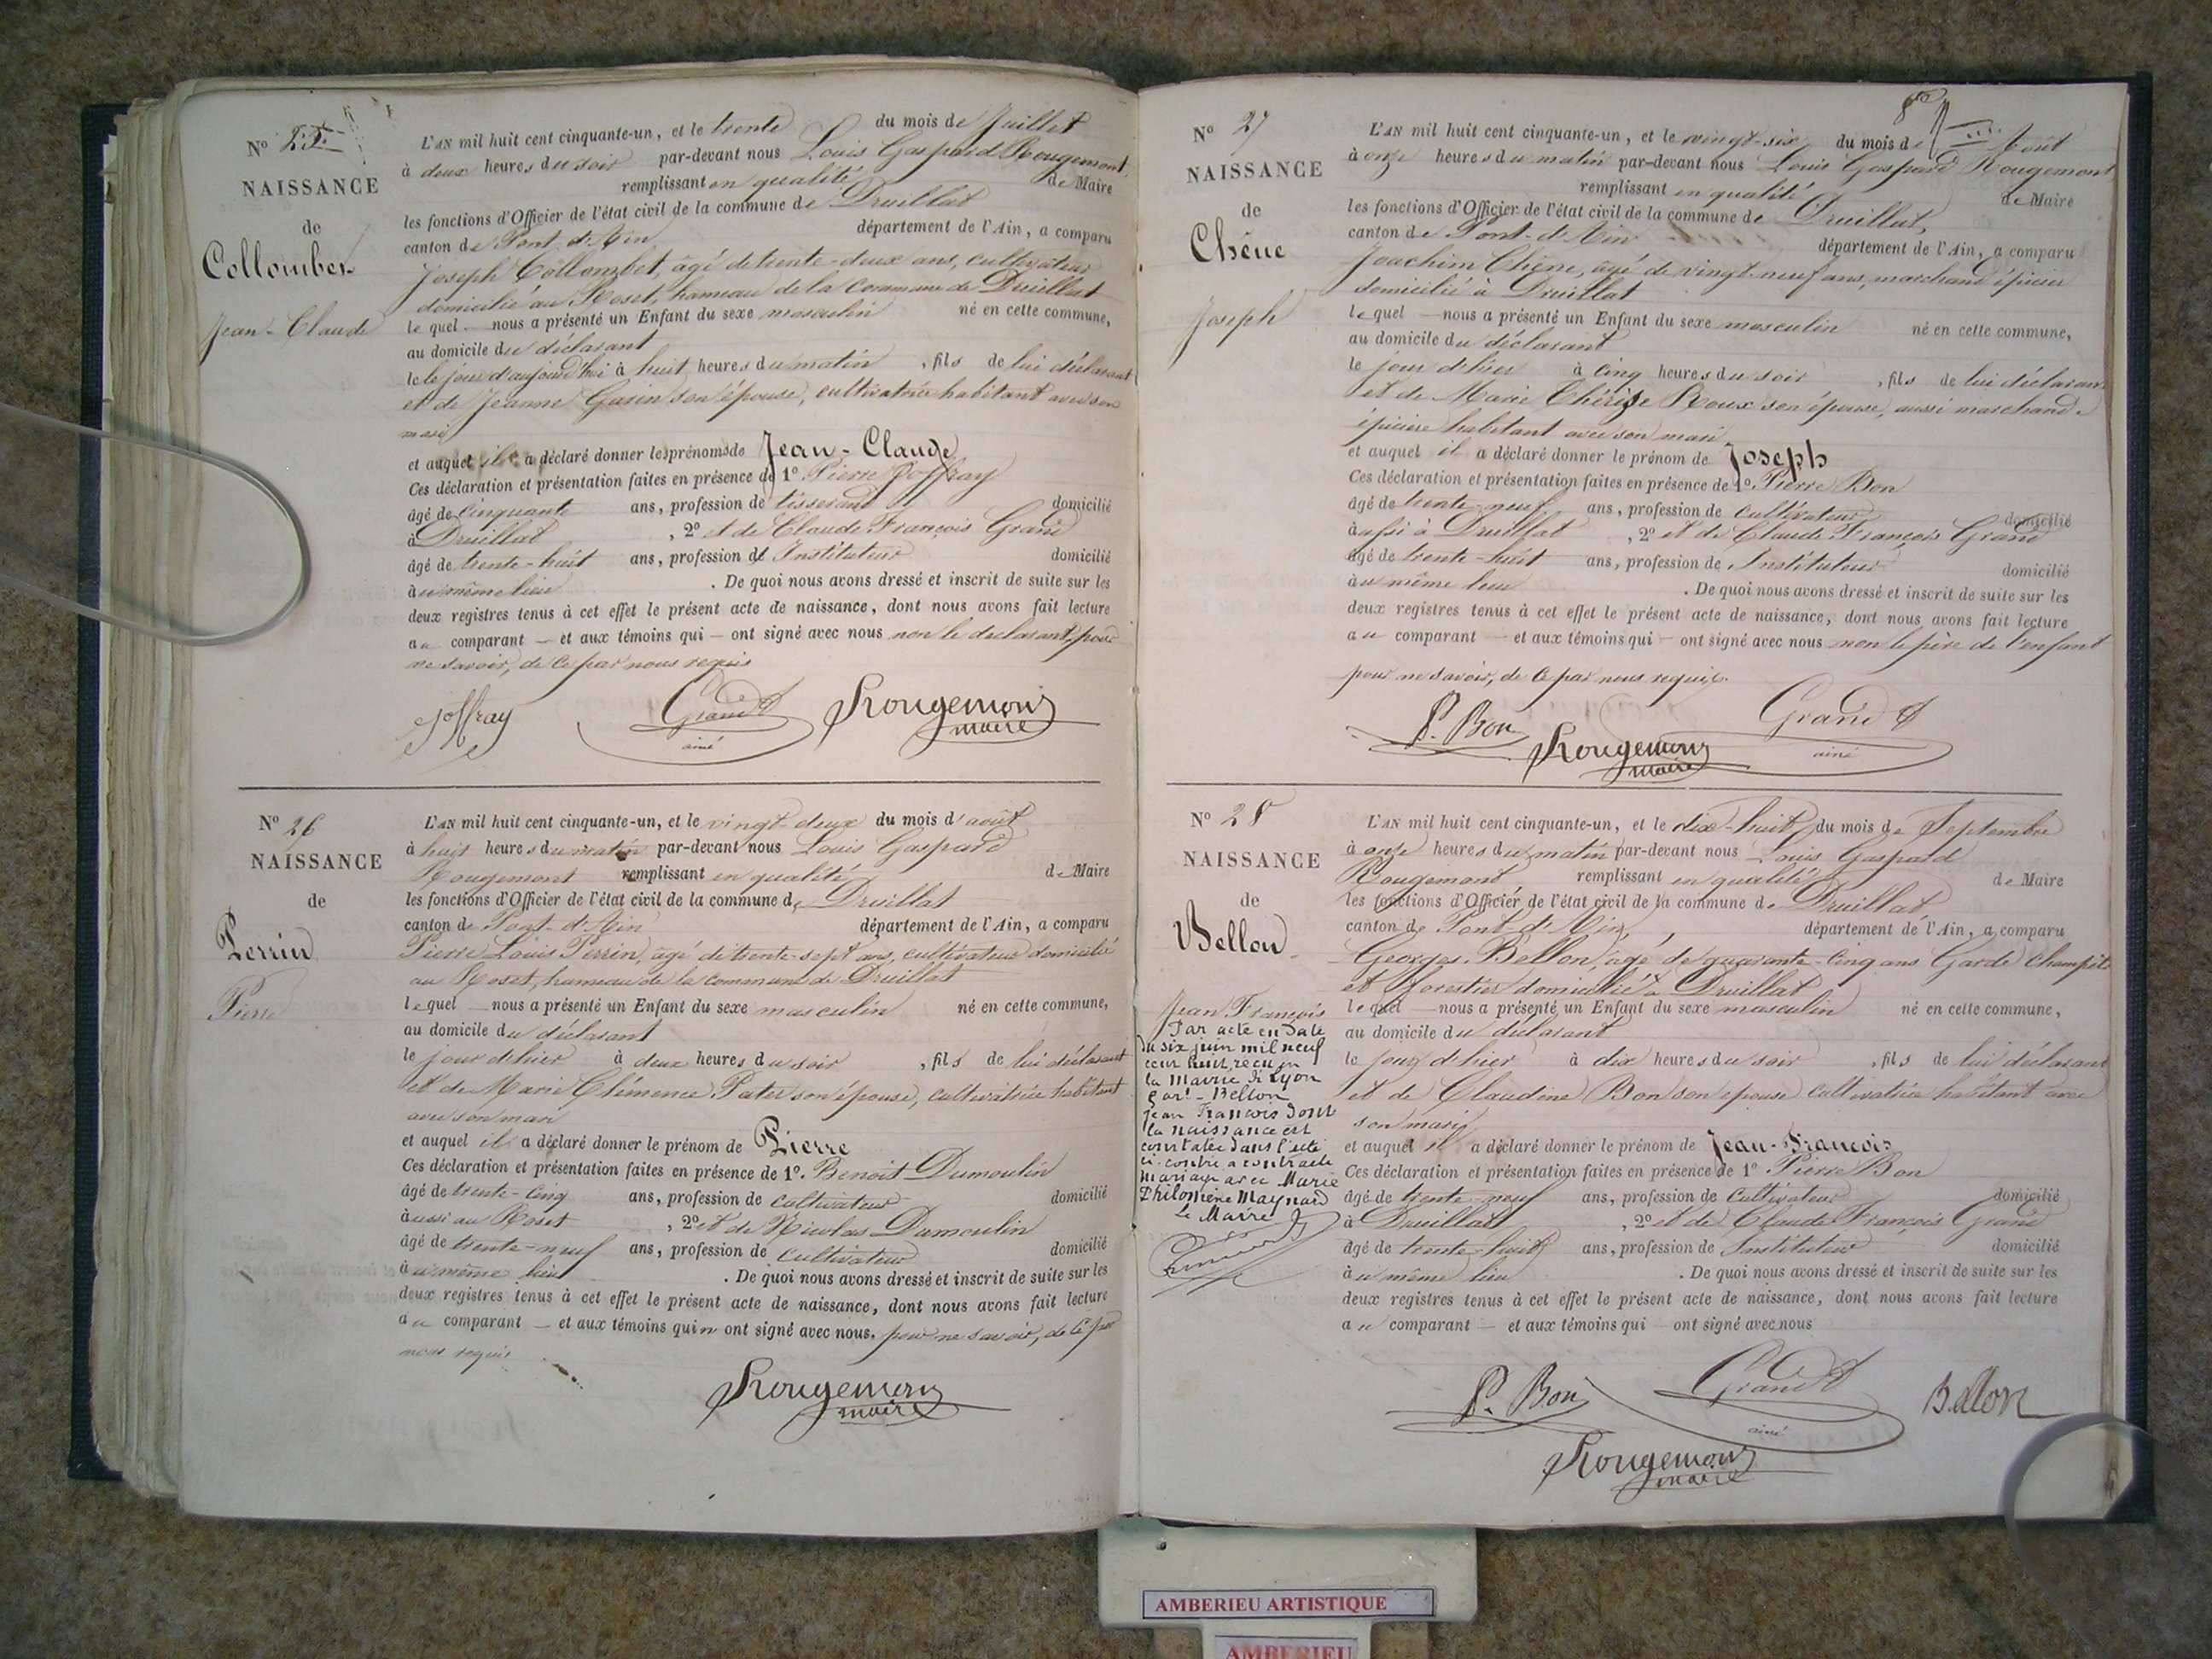 Nº 25
NAISSANCE
de
Collombet
Jean-Claude
L'AN mil huit cent cinquante-un, et le trente du mois de Juillet
à deux heures du soir par-devant nous Louis Gaspard Rougemont
remplissant en qualité de Maire
les fonctions d'Officier de l'état civil de la commune de Druillat
canton de Pont-d'Ain département de l'Ain, a comparu
Joseph Collombet, âgé de trente-deux ans, cultivateur
domicilié au Roset, hameau de la commune de Druillat
lequel nous a présenté un Enfant du sexe masculin né en cette commune,
au domicile du déclarant
le jour d'aujourd'hui à huit heures du matin, fils de lui déclarant
et de Jeanne Garin son épouse, cultivatrice habitant avec son
mari
et auquel il a déclaré donner les prénoms de Jean-Claude
Ces déclaration et présentation faites en présence de 1º Pierre Joffray
âgé de cinquante ans, profession de tisserand domicilié
à Druillat, 2º et de Claude François Grand
âgé de trente-huit ans, profession de Instituteur domicilié
au même lieu. De quoi nous avons dressé et inscrit de suite sur les
deux registres tenus à cet effet le présent acte de naissance, dont nous avons fait lecture
au comparant — et aux témoins qui — ont signé avec nous non le déclarant, pour
ne savoir, de ce par nous requis
Joffray Grand aîné Rougemont maire
Nº 26
NAISSANCE
de
Perrin
Pierre
L'AN mil huit cent cinquante-un, et le vingt-deux du mois d'août
à huit heures du matin par-devant nous Louis Gaspard
Rougemont remplissant en qualité de Maire
les fonctions d'Officier de l'état civil de la commune de Druillat
canton de Pont-d'Ain département de l'Ain, a comparu
Pierre Louis Perrin, âgé de trente-sept ans, cultivateur domicilié
au Roset, hameau de la commune de Druillat
lequel nous a présenté un Enfant du sexe masculin né en cette commune,
au domicile du déclarant
le jour d'hier à deux heures du soir, fils de lui déclarant
et de Marie Clémence Pater son épouse, cultivatrice habitant
avec son mari
et auquel il a déclaré donner le prénom de Pierre
Ces déclaration et présentation faites en présence de 1º. Benoit Dumoulin
âgé de trente-cinq ans, profession de cultivateur domicilié
aussi au Roset, 2º et de Nicolas Dumoulin
âgé de trente-neuf ans, profession de cultivateur domicilié
au même lieu. De quoi nous avons dressé et inscrit de suite sur les
deux registres tenus à cet effet le présent acte de naissance, dont nous avons fait lecture
au comparant — et aux témoins qui n'ont signé avec nous, pour ne savoir, de ce par
nous requis
Rougemont maire
Nº 27
NAISSANCE
de
Chêne
Joseph
L'AN mil huit cent cinquante-un, et le vingt-six du mois de Août
à onze heures du matin par-devant nous Louis Gaspard Rougemont
remplissant en qualité de Maire
les fonctions d'Officier de l'état civil de la commune de Druillat,
canton de Pont-d'Ain département de l'Ain, a comparu
Joachim Chêne, âgé de vingt-neuf ans, marchand épicier
domicilié à Druillat
lequel — nous a présenté un Enfant du sexe masculin né en cette commune,
au domicile du déclarant
le jour d'hier à cinq heures du soir, fils de lui déclarant
et de Marie Thérèse Roux son épouse, aussi marchande
épicière habitant avec son mari
et auquel il a déclaré donner le prénom de Joseph
Ces déclaration et présentation faites en présence de 1º. Pierre Bon
âgé de trente-neuf ans, profession de cultivateur domicilié
aussi à Druillat, 2º et de Claude François Grand
âgé de trente-huit ans, profession de Instituteur domicilié
au même lieu. De quoi nous avons dressé et inscrit de suite sur les
deux registres tenus à cet effet le présent acte de naissance, dont nous avons fait lecture
au comparant — et aux témoins qui — ont signé avec nous non le père de l'enfant
pour ne savoir, de ce par nous requis.
P. Bon Rougemont maire Grand aîné
Nº 28
NAISSANCE
de
Bellon
Jean François
Par acte en date
du six juin mil neuf
cent huit, reçu en
la Mairie de Lyon
Bellon
Jean François dont
la naissance est
constatée dans l'acte
ci-contre a contracté
mariage avec Marie
Philomène Maynard
Le Maire
L'AN mil huit cent cinquante-un, et le dix-huit du mois de Septembre
à onze heures du matin par-devant nous Louis Gaspard
Rougemont remplissant en qualité de Maire
les fonctions d'Officier de l'état civil de la commune de Druillat
canton de Pont-d'Ain, département de l'Ain, a comparu
Georges Bellon, âgé de quarante-cinq ans Garde Champêtre
et forestier domicilié à Druillat
lequel — nous a présenté un Enfant du sexe masculin né en cette commune,
au domicile du déclarant
le jour d'hier à dix heures du soir, fils de lui déclarant
et de Claudine Bon son épouse cultivatrice habitant avec
son mari
et auquel il a déclaré donner le prénom de Jean-François
Ces déclaration et présentation faites en présence de 1º Pierre Bon
âgé de trente-neuf ans, profession de cultivateur domicilié
à Druillat, 2º et de Claude François Grand
âgé de trente-huit ans, profession de Instituteur domicilié
au même lieu. De quoi nous avons dressé et inscrit de suite sur les
deux registres tenus à cet effet le présent acte de naissance, dont nous avons fait lecture
au comparant — et aux témoins qui — ont signé avec nous
P. Bon Grand aîné Bellon
Rougemont maire
AMBERIEU ARTISTIQUE
AMBERIEU